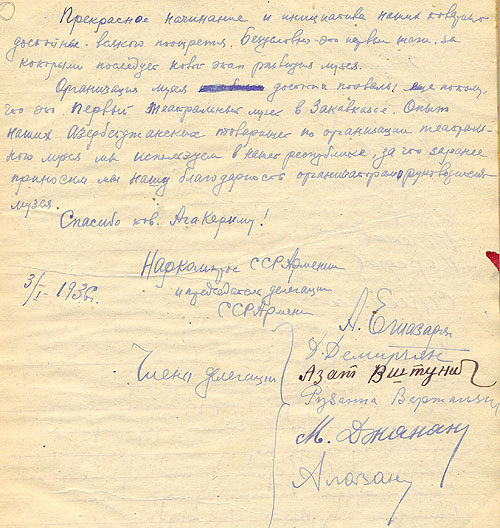 Прекрасное начинание и инициатива наших товарищей
достойны всякого поощрения. Безусловно это первые шаги, за
которыми последует новый этап развития музея.
Организация музея достойна похвалы еще потому,
что это первый театральный музей в Закавказье. Опыт
наших Азербейджанских товарищей по организации театраль-
ного музея мы используем в нашей республике за что заранее
приносим мы нашу благодарность организаторам и руководителям
музея.
Спасибо тов. Ага Кериму!
Наркомпрос ССР Армении
и председатель делегации
ССР Армении
3/I-1936г.
А. Егиазарян
Д. Демирчян
Члены делегации
Азат Вштуни
Рузанна Вартанян
М. Джанан
Алазан